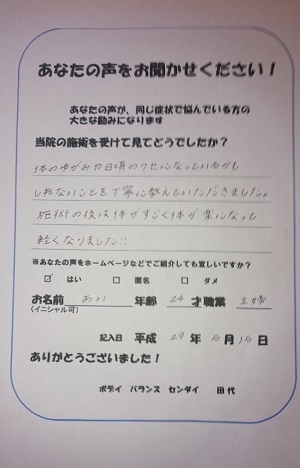 あなたの声をお聞かせください！
あなたの声が、同じ症状で悩んでいる方の
大きな励みになります
当院の施術を受けて見てどうでしたか？
体のゆがみや日頃のクセになっているかも
しれないことを丁寧に教えていただきました。
施術の後は体がすごく体が楽になって
軽くなりました!!
※あなたの声をホームページなどでご紹介しても宜しいですか？
☑ はい □ 匿名 □ ダメ
お名前 年齢 24 才 職業 主婦
(イニシャル可)
記入日 平成 29 年 6月 16日
ありがとうございました！
ボディ バランス センダイ 田代